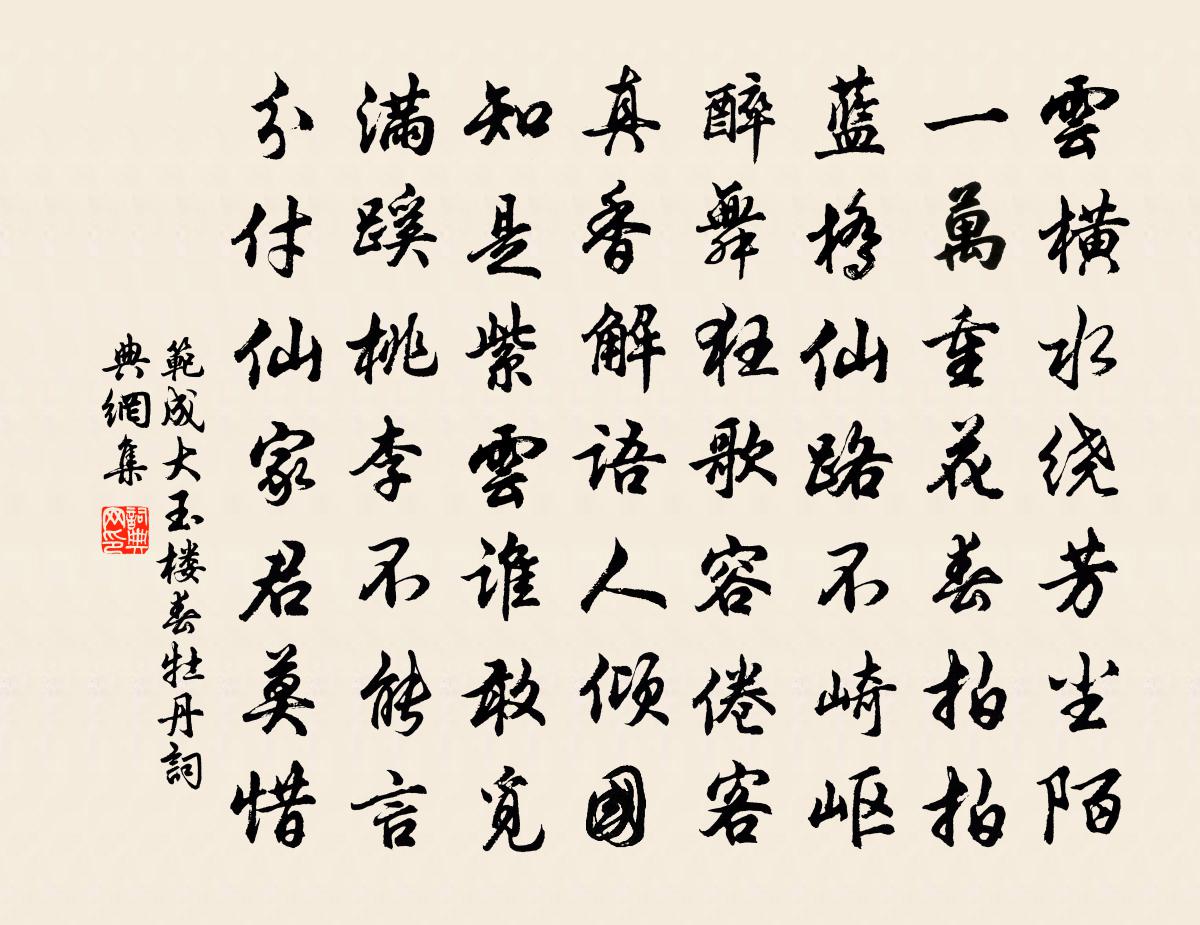 雲橫水绕芳尘陌
一萬重花春拍拍
藍橋仙路不崎岖
醉舞狂歌容倦客
真香解語人傾國
知是紫雲誰敢覓
滿蹊桃李不能言
分付仙家君莫惜
範成大玉楼春牡丹詞
典網集
詞典网印